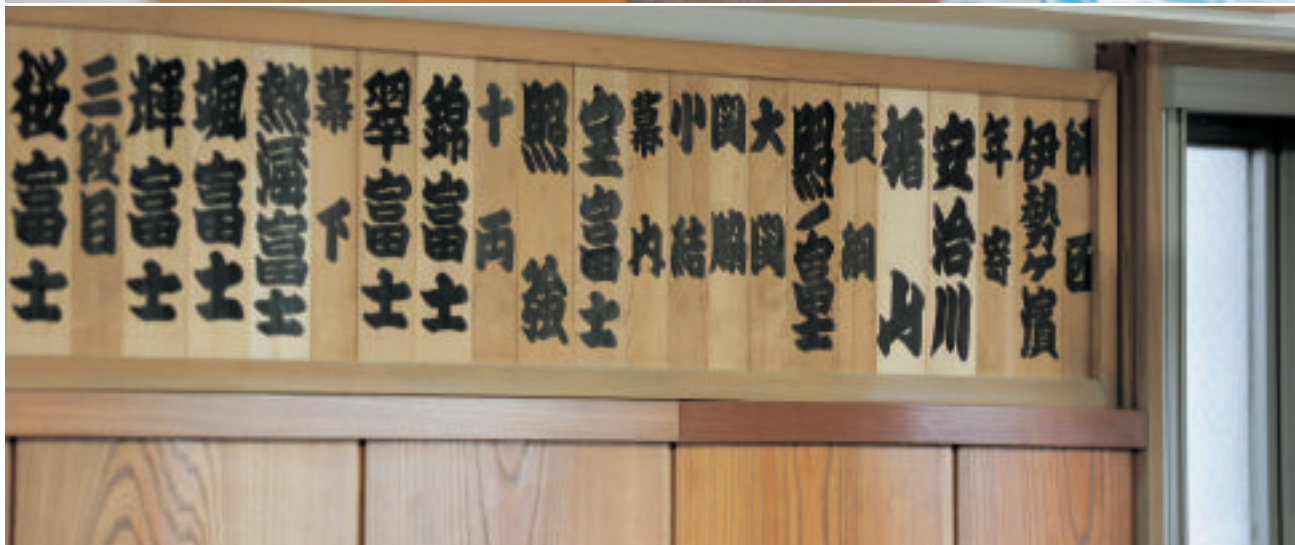 師匠
伊勢ケ濱
年寄
安治川
楯山
横綱
照ノ富士
大関
関脇
小結
幕内
宝富士
照強
十両
錦富士
翠富士
幕下
熱海富士
颯富士
輝富士
三段目
桜富士